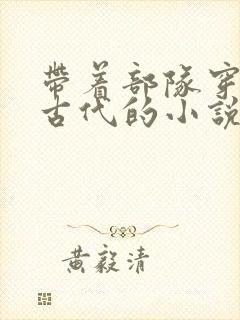 帶着部隊穿
古代的小說
黃毅清